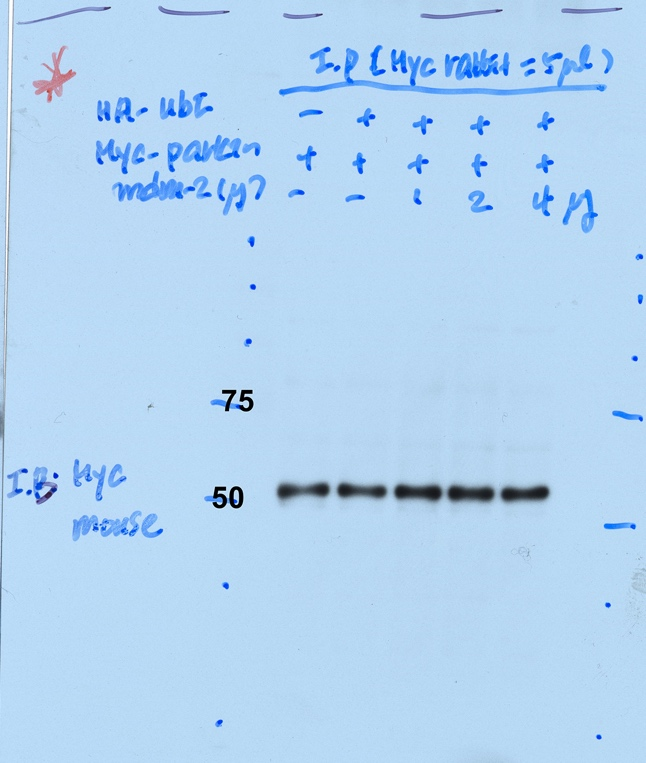 I.P (Myc rabbit = 5 µl)
HA-Ub - + + + +
Myc-parkin + + + + +
mdm-2 (µg) - - 1 2 4 µg
75
I.B: Myc
50
mouse